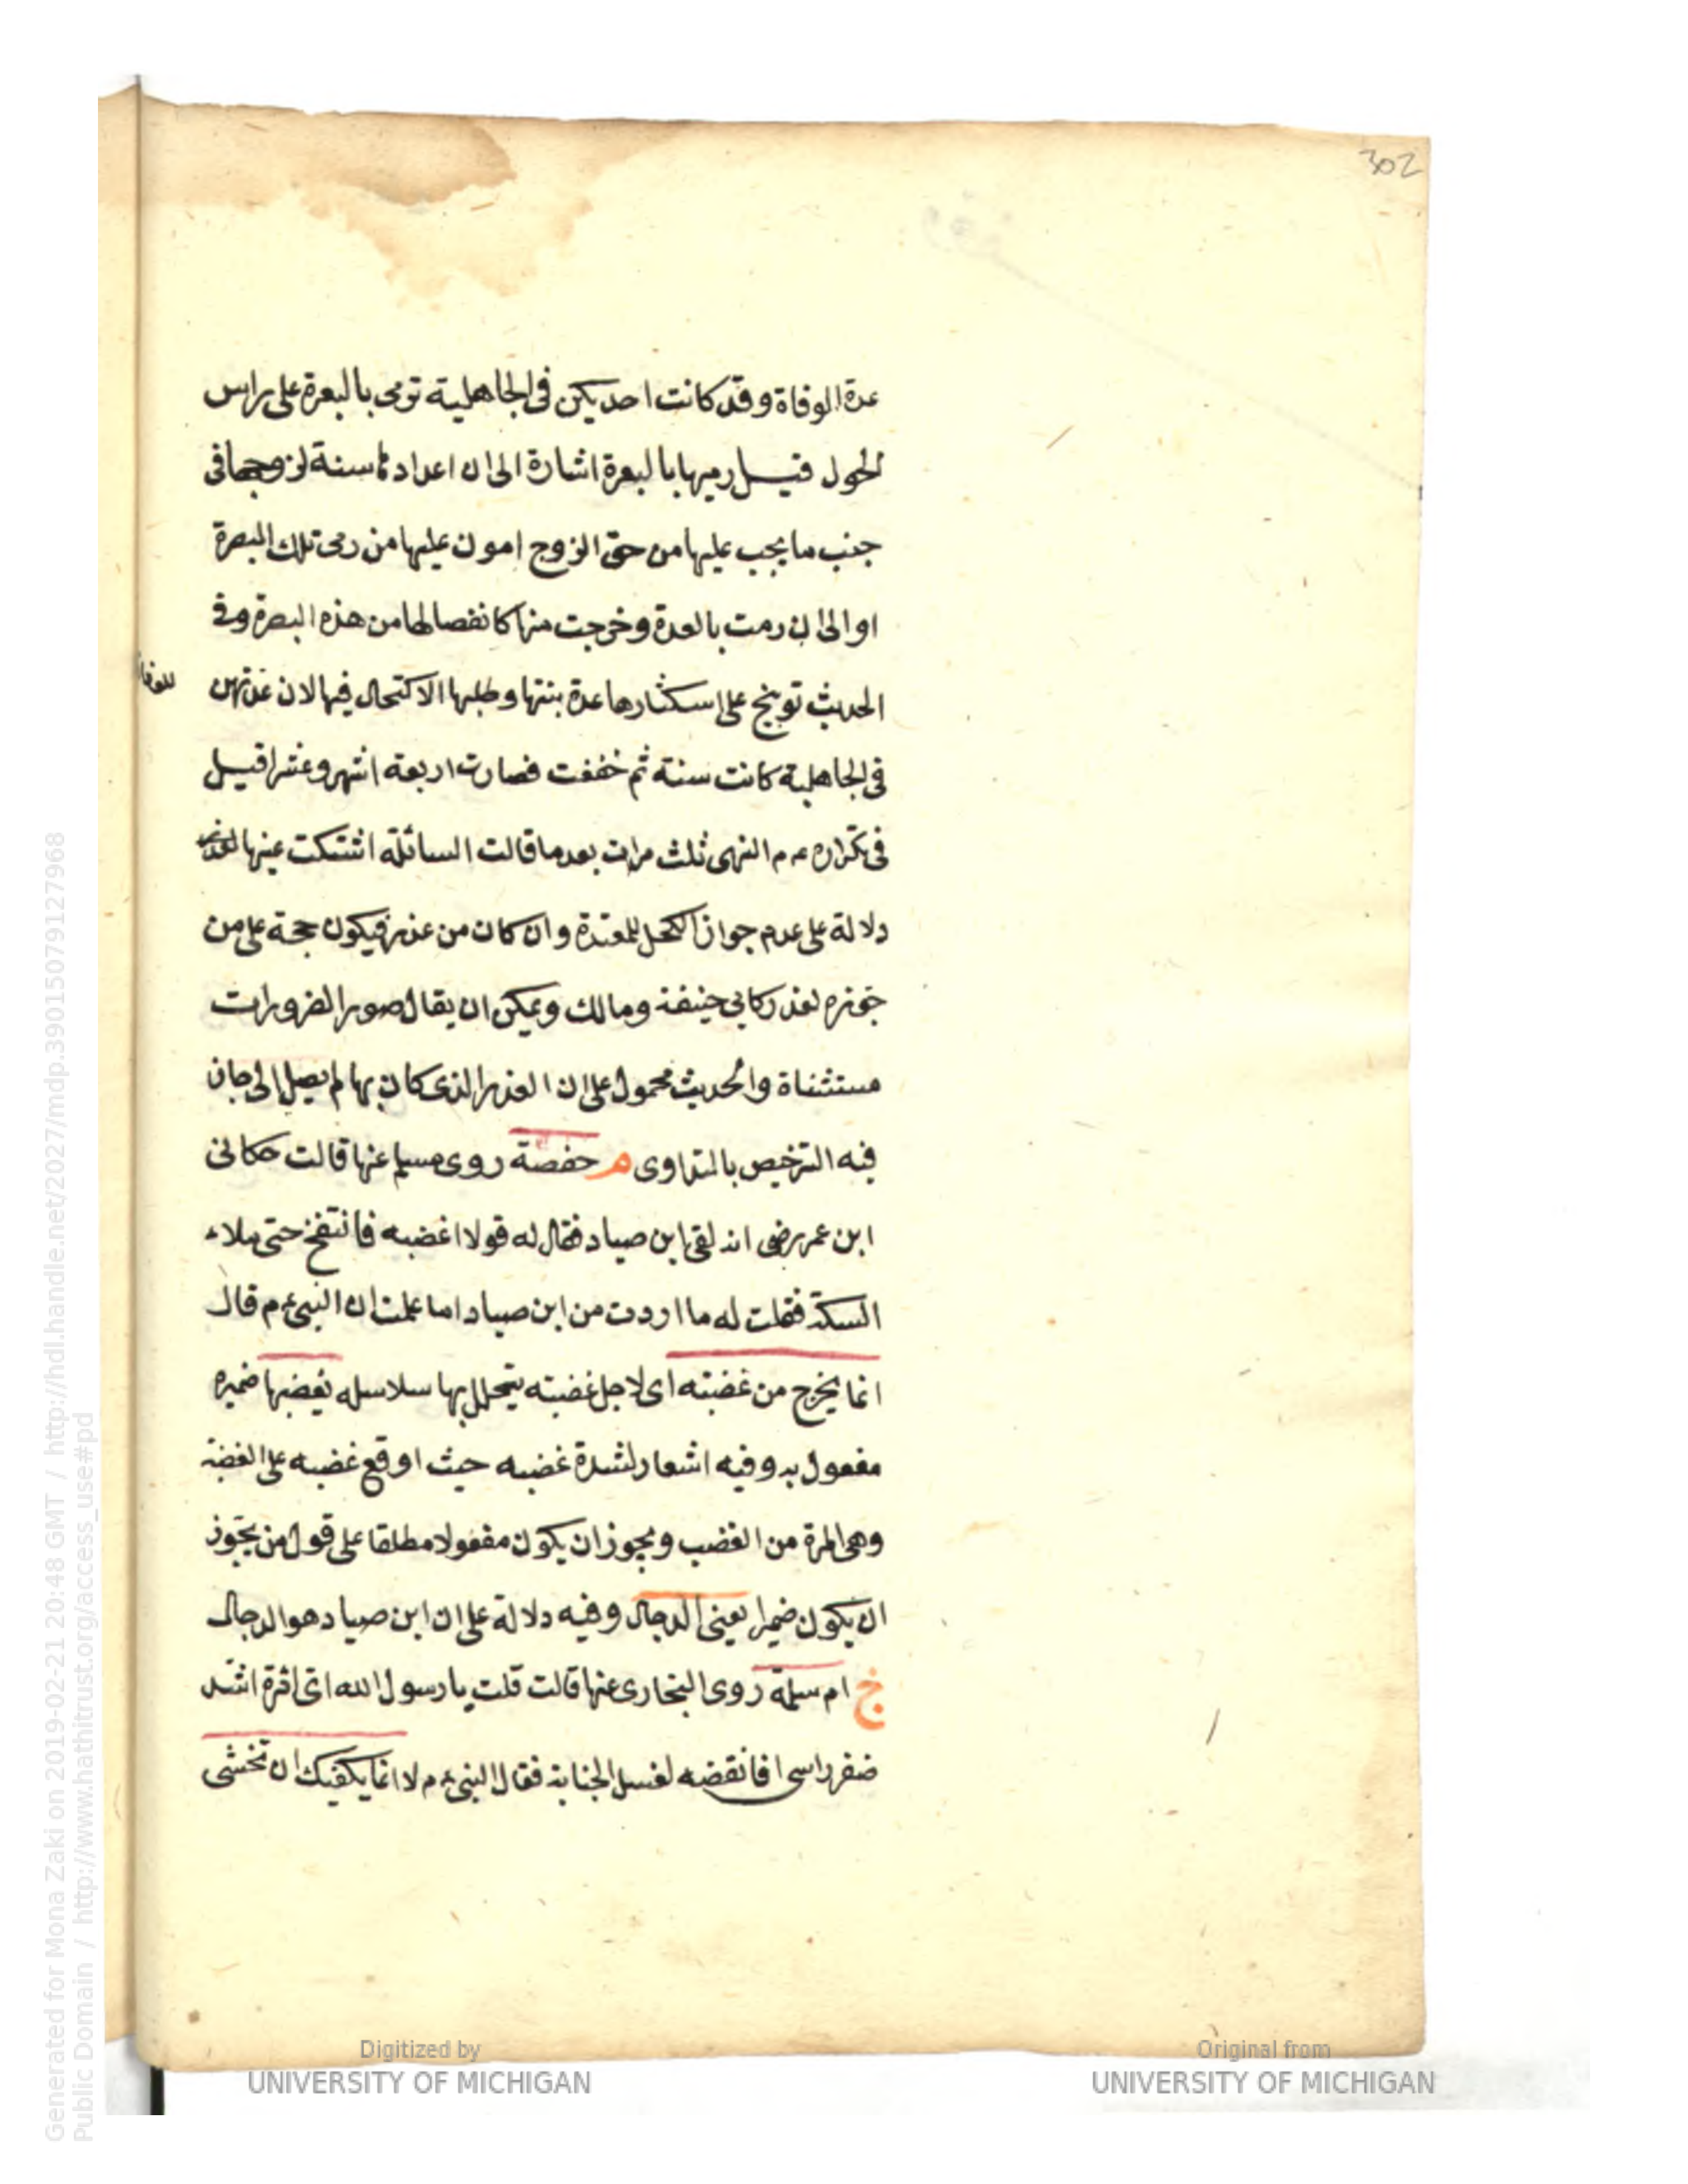 302
عدة الوفاة وقد كانت احديكن فى الجاهلية ترمى بالبعرة على راس
الحول قيل رميها بالبعرة اشارة الى ان اعدادها سنة لزوجها فى
جنب ما يجب عليها من حق الزوج اهون عليها من رمى تلك البعرة
او الى ان رمت بالعدة وخرجت منها كانفصالها من هذه البعرة وفى
الحديث توبيخ على استكثارها عدة بنتها وطلبها الاكتحال فيها لان عدتهن
للوفاة
فى الجاهلية كانت سنة ثم خففت فصارت اربعة اشهر وعشرا قيل
فى تكراره عم النهى ثلث مرات بعد ما قالت السائلة اشتكت عينها
دلالة على عدم جواز الكحل للمعتدة وان كان من عذر فيكون حجة على من
جوزه لعذر كابى حنيفة ومالك ويمكن ان يقال صور الضرورات
مستثناة والحديث محمول على ان العذر الذى كان بها لم يصل الى
فيه الترخيص بالتداوى م حفصة روى مسلم عنها قالت حكانى
ابن عمر رضى انه لقى ابن صياد فقال له قولا اغضبه فانتفخ حتى ملاء
السكة فقلت له ما اردت من ابن صياد اما علمت ان النبى عم قال
انما يخرج من غضبته اى لاجل غضبته يتحلل بها سلاسله يغضبها ضميره
مفعول به وفيه اشعار لشدة غضبه حيث اوقع غضبه على الغضبة
وهى المرة من الغضب ويجوز ان يكون مفعولا مطلقا على قول من يجوز
ان يكون ضميرا يعنى الدجال وفيه دلالة على ان ابن صياد هو الدجال
خ ام سلمة روى البخارى عنها قالت قلت يا رسول الله انى امرة اشد
ضفر راسى افانقضه لغسل الجنابة فقال النبى عم لا انما يكفيك ان تحثى
Digitized by
UNIVERSITY OF MICHIGAN
Original from
UNIVERSITY OF MICHIGAN
Generated for Mona Zaki on 2019-02-21 20:48 GMT / http://hdl.handle.net/2027/mdp.39015079127968
Public Domain / http://www.hathitrust.org/access_use#pd